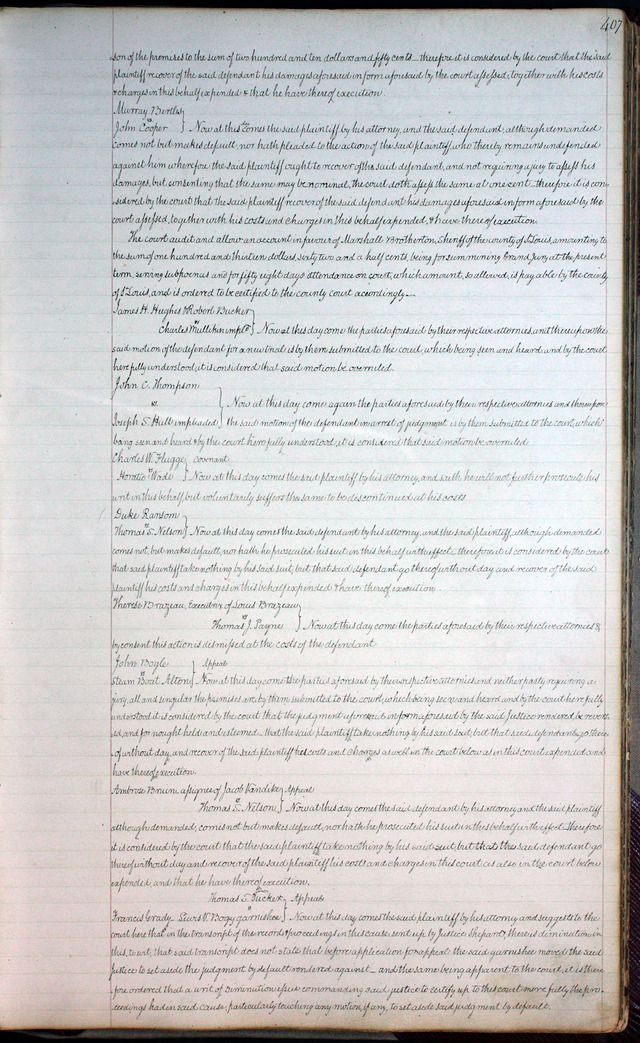 407
son of the premises to the sum of two hundred and ten dollars and fifty cents — therefore it is considered by the court that the said
plaintiff recover of the said defendant his damages aforesaid in form aforesaid by the court assessed, together with his costs
& charges in this behalf expended & that he have thereof execution.
Murray
vs
John Cooper } Now at this day comes the said plaintiff by his attorney, and the said defendant, although demanded
comes not but makes default, nor hath pleaded to the action of the said plaintiff, who thereby remains undefended
against him wherefore the said plaintiff ought to recover of the said defendant, and not requiring a jury to assess his
damages, but consenting that the same may be nominal, the court doth assess the same at one cent — therefore it is con-
sidered by the court that the said plaintiff recover of the said defendant his damages aforesaid in form aforesaid by the
court assessed, together with his costs and charges in this behalf expended, & have thereof execution.
The court audit and allow an account in favour of Marshall Brotherton, Sheriff of the county of St Louis, amounting to
the sum of one hundred and thirteen dollars sixty two and a half cents, being for summoning Grand Jury at the present
term, serving subpoenas and for fifty eight days attendance on court, which amount, so allowed, is payable by the county
of St Louis, and is ordered to be certified to the county court accordingly. —
James H. Hughes & Robert Bucker
vs
Charles Mullikin impl'd } Now at this day come the parties aforesaid by their respective attornies, and thereupon the
said motion of the defendant for a new trial is by them submitted to the court, which being seen and heard, and by the court
here fully understood, it is considered that said motion be overruled.
John C. Thompson
vs
Joseph S. Hull impleaded } Now at this day come again the parties aforesaid by their respective attornies and thereupon
the said motion of the defendant in arrest of judgment is by them submitted to the court, which
being seen and heard & by the court here fully understood, it is considered that said motion be overruled
Charles W. Flugge } covenant
vs
Horatio Wade } Now at this day comes the said plaintiff by his attorney, and saith he will not further prosecute his
writ in this behalf, but voluntarily suffers the same to be discontinued at his costs
Duke Ransom
vs
Thomas S. Nelson } Now at this day comes the said defendant by his attorney, and the said plaintiff, although demanded
comes not, but makes default, nor hath he prosecuted his suit in this behalf with effect; therefore it is considered by the court
that said plaintiff take nothing by his said suit, but that said defendant go thereof without day and recover of the said
plaintiff his costs and charges in this behalf expended & have thereof execution.
Therese Brazeau, Executrix of Louis Brazeau
vs
Thomas J. Payne } Now at this day come the parties aforesaid by their respective attornies &
by consent this action is dismissed at the costs of the defendant
John Bogle } Appeal
vs
Steam Boat Alton } Now at this day come the parties aforesaid by their respective attornies, and neither party requiring a
jury, all and singular the premises are by them submitted to the court, which being seen and heard, and by the court here fully
understood it is considered by the court that the judgment aforesaid in form aforesaid by the said Justice rendered be revers-
ed, and for nought held and esteemed — that the said plaintiff take nothing by his said suit, but that said defendant go there-
of without day, and recover of the said plaintiff his costs and charges as well in the court below as in this court expended and
have thereof execution.
Ambrose Bruin assignee of Jacob Vandike } Appeal
vs
Thomas S. Nelson } Now at this day comes the said defendant by his attorney and the said plaintiff
although demanded, comes not but makes default, nor hath he prosecuted his suit in this behalf with effect — Therefore
it is considered by the court that the said plaintiff take nothing by his said suit, but that the said defendant go
thereof without day and recover of the said plaintiff his costs and charges in this court as also in the court below
expended, and that he have thereof execution.
Thomas S. Tucker } Appeal
vs
Francis Grady Lewis V. Bogy garnishee } Now at this day comes the said plaintiff by his attorney and suggests to the
court here that in the transcript of the record & proceedings in this cause sent up by Justice Shepard, there is diminution in
this, to wit, that said transcript does not state that before application for appeal the said garnishee moved the said
Justice to set aside the judgment by default rendered against — and the same being apparent to the court, it is there-
fore ordered that a writ of diminution issue commanding said justice to certify up to this court more fully the pro-
ceedings had in said cause, particularly touching any motion, if any, to set aside said judgment by default.